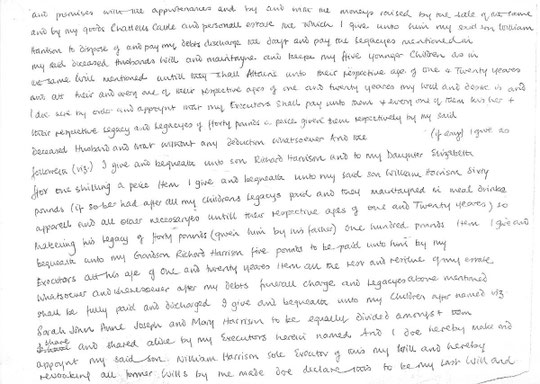 and promises with the appurtenances and by and with the moneys raised by the sale of the same
and by my goods Chattells Cattle and personall estate the which I give unto him my said son William
Harrison to dispose of and pay my debts discharge the Craft and pay the Legacyes mentioned in
my said diseased Husbands Will and maintayne and keepe my five younger Children as in
the same Will mentioned untill they shall Attaine unto their respective age of one & Twenty yeares
and att their and every one of their respective ages of one and twenty yeares my will and desire is and
I doe here by order and appoynt that my Executors shall pay unto them & every one of them his her &
their respective Legacy and Legacyes of fforty pounds a peece given them respectively by my said
deceased Husband and that without any deduction whatsoever And the (if any) I give as
followeth (viz.) I give and bequeath unto son Richard Harrison and to my Daughter Elizabeth
for one shilling a peice Item I give and bequeath unto my said son William Harrison Sixty
pounds (if so bee had after all my childrens Legacys paid and they maintayned in meal drinke
apparell and all other necessaryes untill their respective ages of one and Twenty yeares) so
making his legacy of forty pounds (given him by his father) one hundred pounds Item I give and
bequeath unto my Grandson Richard Harrison five pounds to be paid unto him by my
Executors att his age of one and twenty yeares Item all the rest and residue of my estate
Whatsoever and wheresoever after my debts funerall charge and Legacyes above mentioned
shall be fully paid and discharged I give and bequeath unto my Children after named viz
Sarah John Anne Joseph and Mary Harrison to be equally divided amongst them
& share and shared alike by my Executors herein named And I doe hereby make and
appoynt my said son William Harrison sole Executor of this my Will and hereby
revoaking all former Wills by me made doe declare this to be my Last Will and